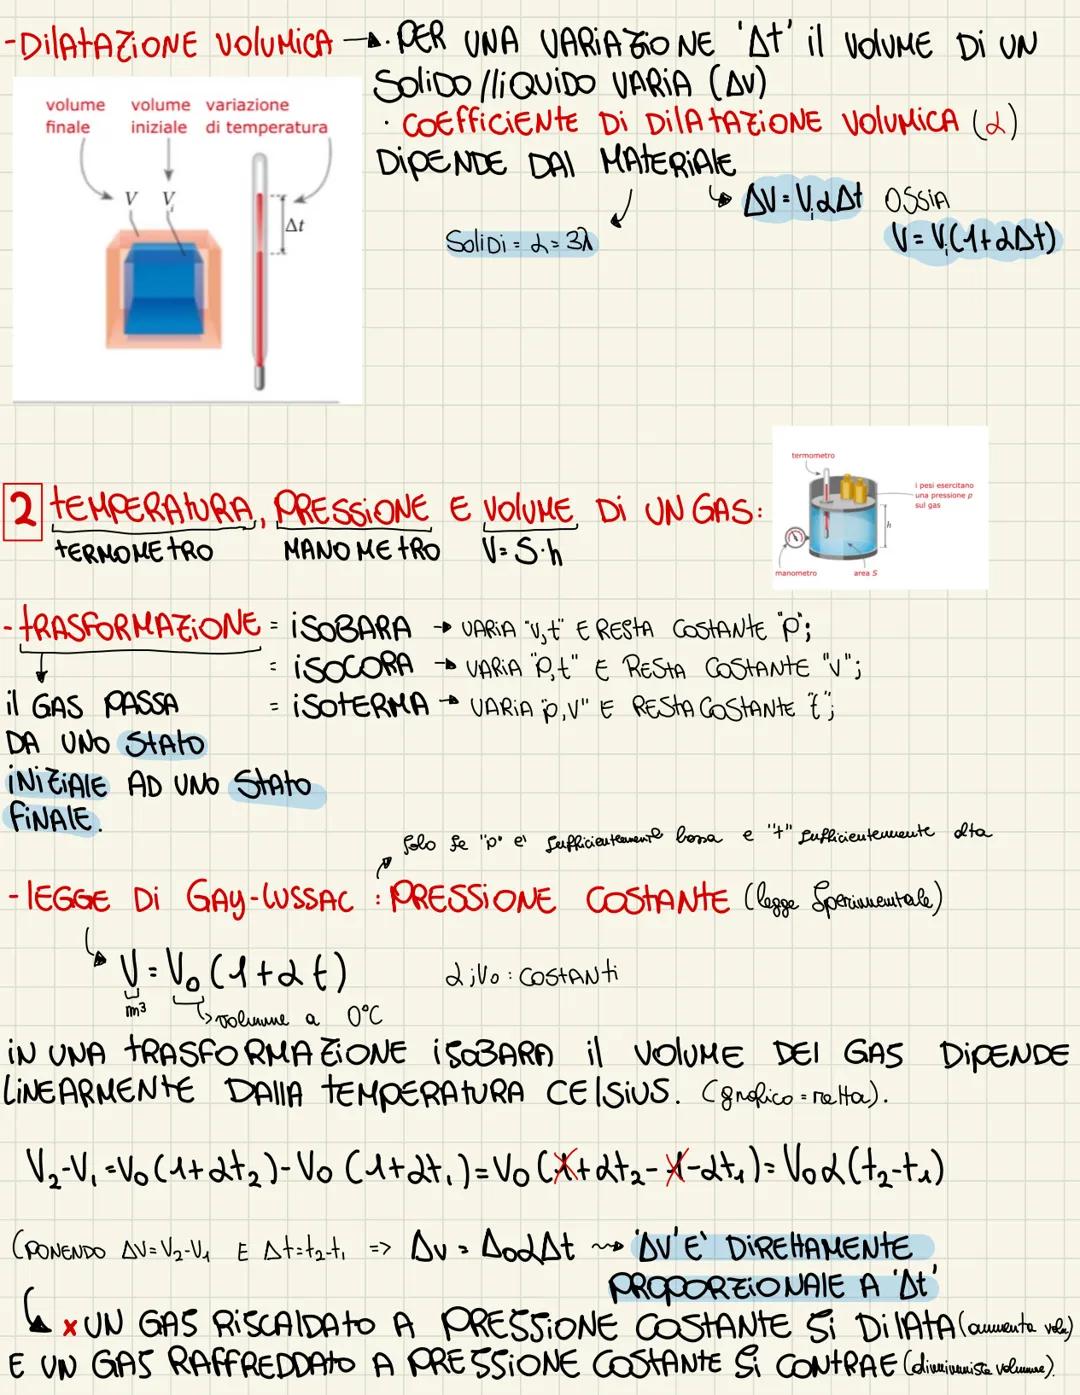 -DILATAZIONE VOLUMICA → · PER UNA VARIAZIONE 'Δt' IL VOLUME DI UN
SOLIDO/LIQUIDO VARIA (ΔV)
· COEFFICIENTE DI DILATAZIONE VOLUMICA (α)
DIPENDE DAL MATERIALE
ΔV = Vᵢ α Δt OSSIA
V = Vᵢ (1 + α Δt)
SOLIDI = α = 3λ
volume finale
volume iniziale
variazione di temperatura
V Vᵢ
Δt
2 TEMPERATURA, PRESSIONE E VOLUME DI UN GAS:
TERMOMETRO MANOMETRO V = S·h
termometro
i pesi esercitano
una pressione p
sul gas
h
manometro
area S
- TRASFORMAZIONE = ISOBARA → VARIA "V,t" E RESTA COSTANTE "p";
= ISOCORA → VARIA "p,t" E RESTA COSTANTE "V";
= ISOTERMA → VARIA "p,V" E RESTA COSTANTE "t";
IL GAS PASSA
DA UNO STATO
INIZIALE AD UNO STATO
FINALE.
solo se "p" e' sufficientemente bassa e "t" sufficientemente alta
- LEGGE DI GAY-LUSSAC : PRESSIONE COSTANTE (legge sperimentale)
V = V₀ (1 + α t) α ; V₀ : COSTANTI
m³
volume a 0°C
IN UNA TRASFORMAZIONE ISOBARA IL VOLUME DEL GAS DIPENDE
LINEARMENTE DALLA TEMPERATURA CELSIUS. (grafico = retta).
V₂-V₁ = V₀ (1+αt₂) - V₀ (1+αt₁) = V₀ (1+αt₂-1-αt₁) = V₀α (t₂-t₁)
(PONENDO ΔV = V₂-V₁ E Δt = t₂-t₁ => ΔV = Δ₀αΔt ⇝ 'ΔV' E' DIRETTAMENTE
PROPORZIONALE A 'Δt'
x UN GAS RISCALDATO A PRESSIONE COSTANTE SI DILATA (aumenta vol.)
E UN GAS RAFFREDDATO A PRESSIONE COSTANTE SI CONTRAE (diminuisce volume).